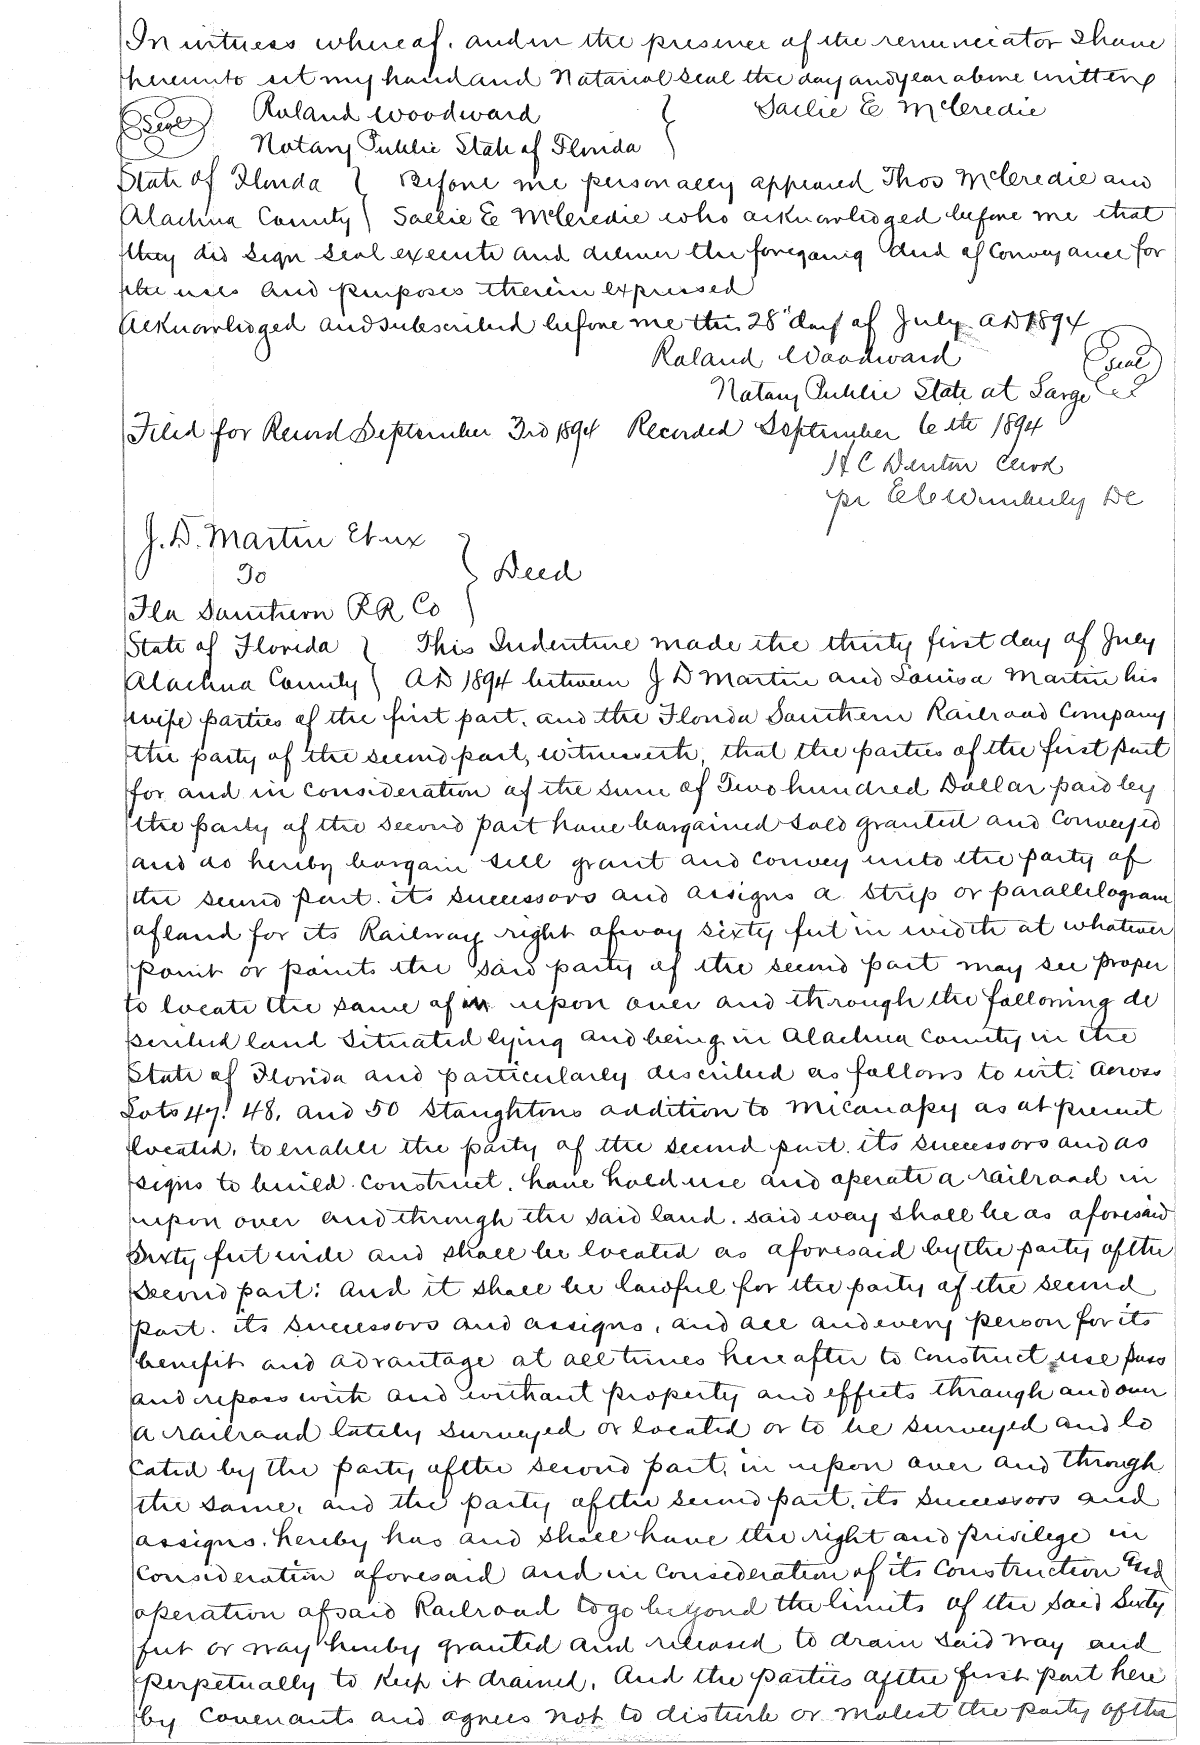 In witness whereof. and in the presence of the renunciator I have
hereunto set my hand and Notarial seal the day and year above written
Seal Roland Woodward Sallie E McCredie
Notary Public State of Florida
State of Florida Before me personally appeared Thos McCredie and
Alachua County Sallie E McCredie who acknowledged before me that
they did sign seal execute and deliver the foregoing deed of conveyance for
the uses and purposes therein expressed
Acknowledged and subscribed before me this 28" day of July AD 1894
Roland Woodward Seal
Notary Public State at Large
Filed for Record September 3rd 1894 Recorded September 6th 1894
H C Denton Clerk
pr E C Wimberly DC
J. D. Martin Et ux
To Deed
Fla Southern RR Co
State of Florida This Indenture made the thirty first day of July
Alachua County AD 1894 between J D Martin and Louisa Martin his
wife parties of the first part, and the Florida Southern Railroad Company
the party of the second part, witnesseth, that the parties of the first part
for and in consideration of the sum of Two hundred Dollar paid by
the party of the second part have bargained sold granted and conveyed
and do hereby bargain sell grant and convey unto the party of
the second part. its successors and assigns a strip or parallelogram
of land for its Railway right of way sixty feet in width at whatever
point or points the said party of the second part may see proper
to locate the same of in upon over and through the following de
scribed land situated lying and being in Alachua County in the
State of Florida and particularly described as follows to wit: Across
Lots 47. 48. and 50 Staughtons addition to Micanopy as at present
located, to enable the party of the second part. its successors and as
signs to build. construct. have hold use and operate a railroad in
upon over and through the said land. said way shall be as aforesaid
Sixty feet wide and shall be located as aforesaid by the party of the
second part: And it shall be lawful for the party of the second
part. its successors and assigns, and all and every person for its
benefit and advantage at all times hereafter to construct use pass
and repass with and without property and effects through and over
a railroad lately surveyed or located or to be surveyed and lo
cated by the party of the second part, in upon over and through
the same, and the party of the second part. its successors and
assigns. hereby has and shall have the right and privilege in
consideration aforesaid and in consideration of its construction and
operation of said Railroad to go beyond the limits of the said Sixty
feet or way hereby granted and released to drain said way and
perpetually to keep it drained. And the parties of the first part here
by covenants and agrees not to disturb or molest the party of the